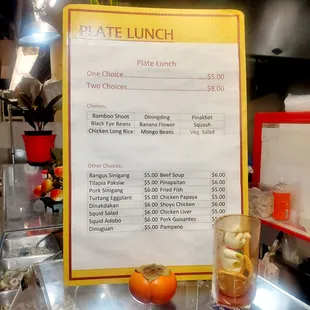 PLATE LUNCH
Plate Lunch
One Choice $5.00
Two Choices $8.00
Choices:
Bamboo Shoot Diningding Pinakbet
Black Eye Beans Banana Flower Squash
Chicken Long Rice Mongo Beans Veg. Salad
Other Choices:
Bangus Sinigang $5.00 Beef Soup $6.00
Tilapia Paksiw $5.00 Pinapaitan $6.00
Pork Sinigang $5.00 Fried Fish $5.00
Turtang Eggplant $5.00 Chicken Papaya $5.00
Dinakdakan $6.00 Shoyu Chicken $5.00
Squid Salad $6.00 Chicken Liver $5.00
Squid Adobo $5.00 Pork Guisantes $5.00
Dinuguan $5.00 Pampano $5.00